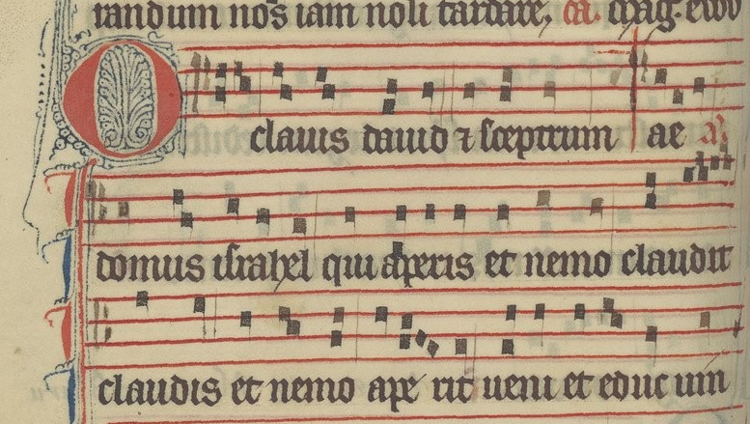 randum nos iam noli tardare, ca. mag. ewv
O clauis dauid ⁊ sceptrum ae a.
domus israhel qui aperis et nemo claudit
claudis et nemo ape rit ueni et educ uin